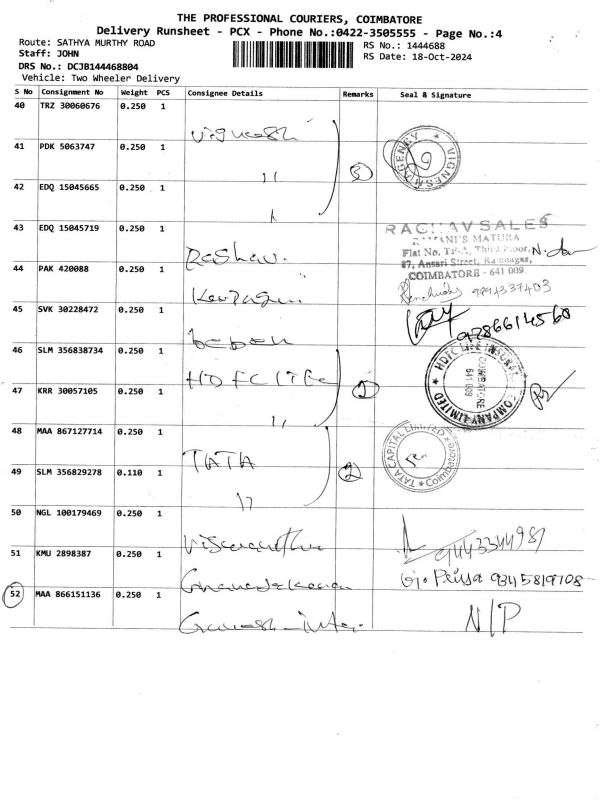 THE PROFESSIONAL COURIERS, COIMBATORE
Delivery Runsheet - PCX - Phone No.:0422-3505555 - Page No.:4
Route: SATHYA MURTHY ROAD
RS No.: 1444688
Staff: JOHN
RS Date: 18-Oct-2024
DRS No.: DCJB144468804
Vehicle: Two Wheeler Delivery
S No Consignment No Weight PCS Consignee Details Remarks Seal & Signature
40 TRZ 30060676 0.250 1
Vignesh
41 PDK 5063747 0.250 1
3
VIGNESH AGENCY
42 EDQ 15045665 0.250 1
43 EDQ 15045719 0.250 1
RAGHAV SALES
RAMANI'S MATURA
Third Floor,
87, Ansari Street, Ramnagar,
COIMBATORE - 641 009
44 PAK 420088 0.250 1
9894337403
45 SVK 30228472 0.250 1
46 SLM 356838734 0.250 1
HDFC Life
1
HDFC LIFE INSURANCE COMPANY LIMITED
COIMBATORE
641 009
47 KRR 30057105 0.250 1
48 MAA 867127714 0.250 1
TATA
2
TATA CAPITAL LIMITED
Coimbatore
49 SLM 356829278 0.110 1
50 NGL 100179469 0.250 1
9443344987
51 KMU 2898387 0.250 1
Priya 9345819708
52 MAA 866151136 0.250 1
N/P